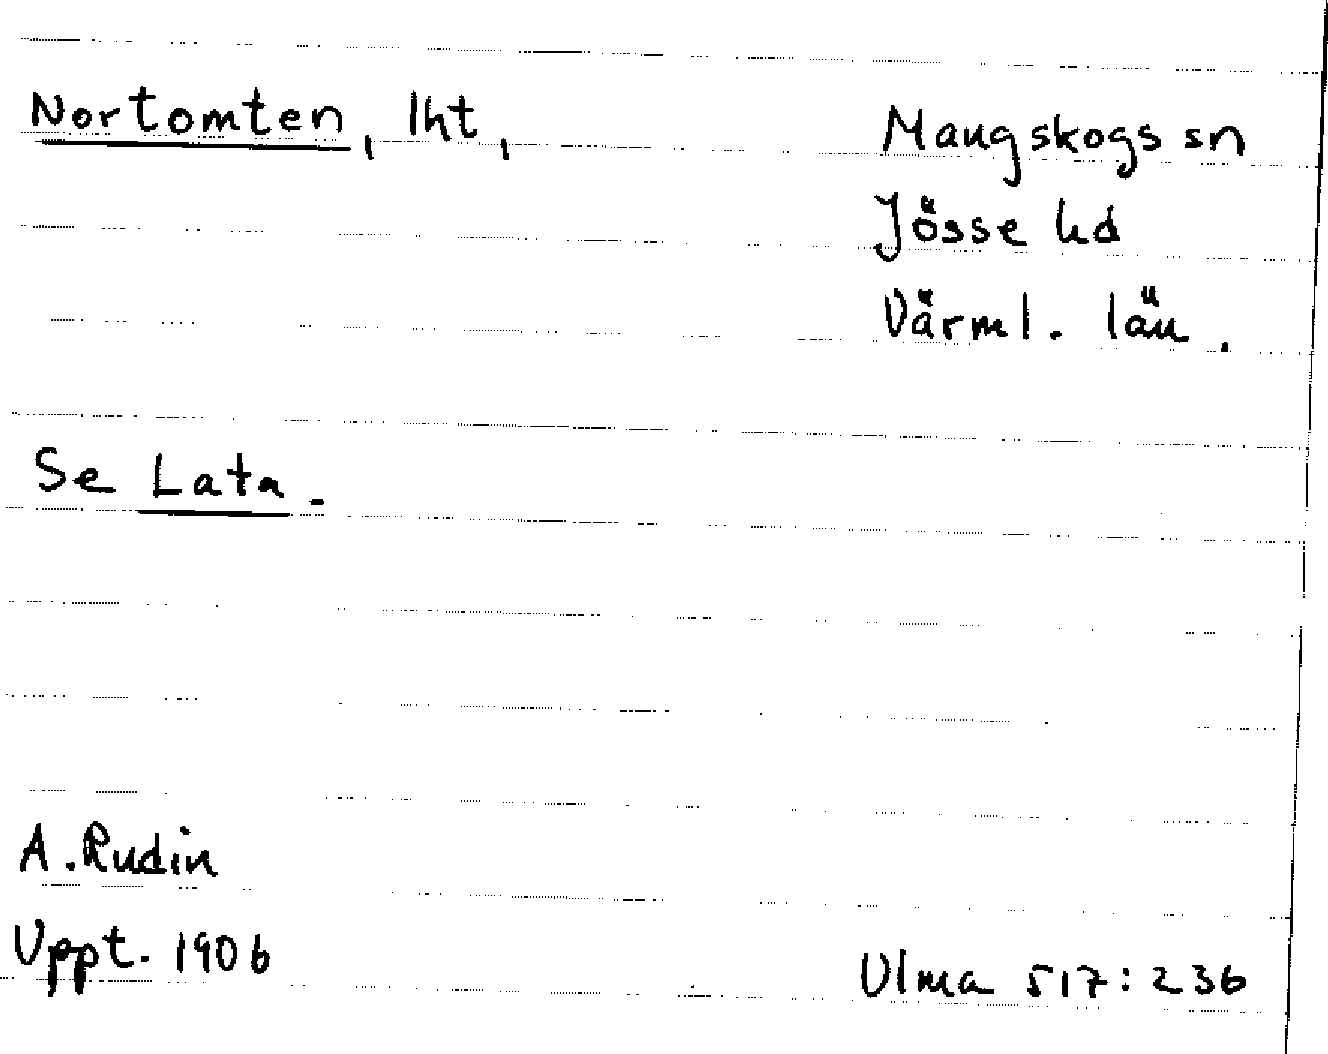 Nortomten, lht,
Mangskogs sn
Jösse hd
Värml. län.
Se Lata.
A. Rudin
Uppt. 1906
Ulma 517:236